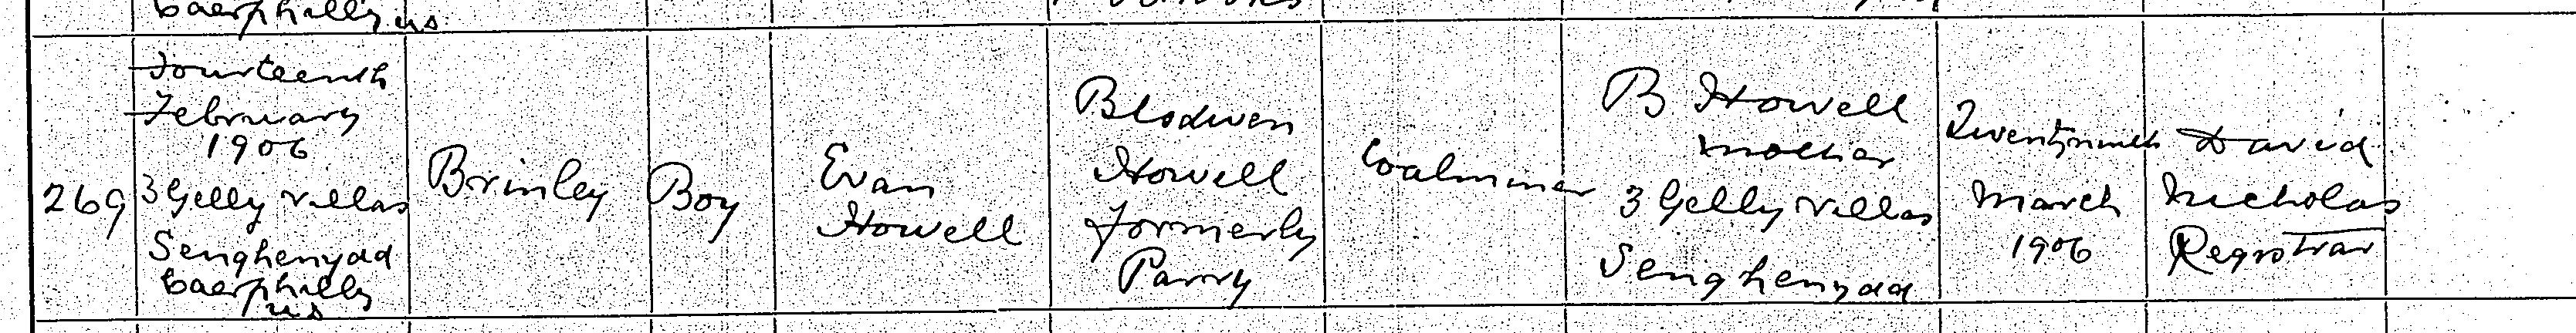 Caerphilly us
269
Fourteenth
February
1906
3 Gelly Villas
Senghenydd
Caerphilly
us
Brinley
Boy
Evan
Howell
Blodwen
Howell
formerly
Parry
Coalminer
B Howell
Mother
3 Gelly Villas
Senghenydd
Twentyninth
March
1906
David
Nicholas
Registrar